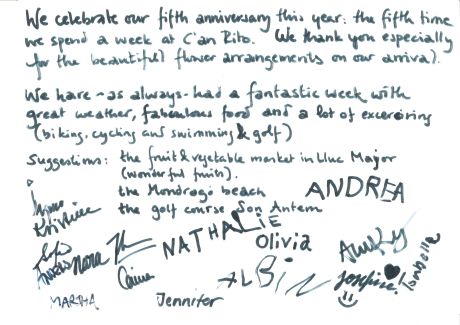 We celebrate our fifth anniversary this year: the fifth time
we spend a week at C'an Rito. We thank you especially
for the beautiful flower arrangements on our arrival.
We have - as always - had a fantastic week with
great weather, fabulous food and a lot of excersiring
(biking, cycling and swimming & golf)
Suggestions: the fruit & vegetable market in blue Major
(wonderful fruits).
the Mondrago beach
the golf course Son Antem
ANDREA
NATHALIE
Olivia
ALBIN
Josefine
MARTHA
Jennifer